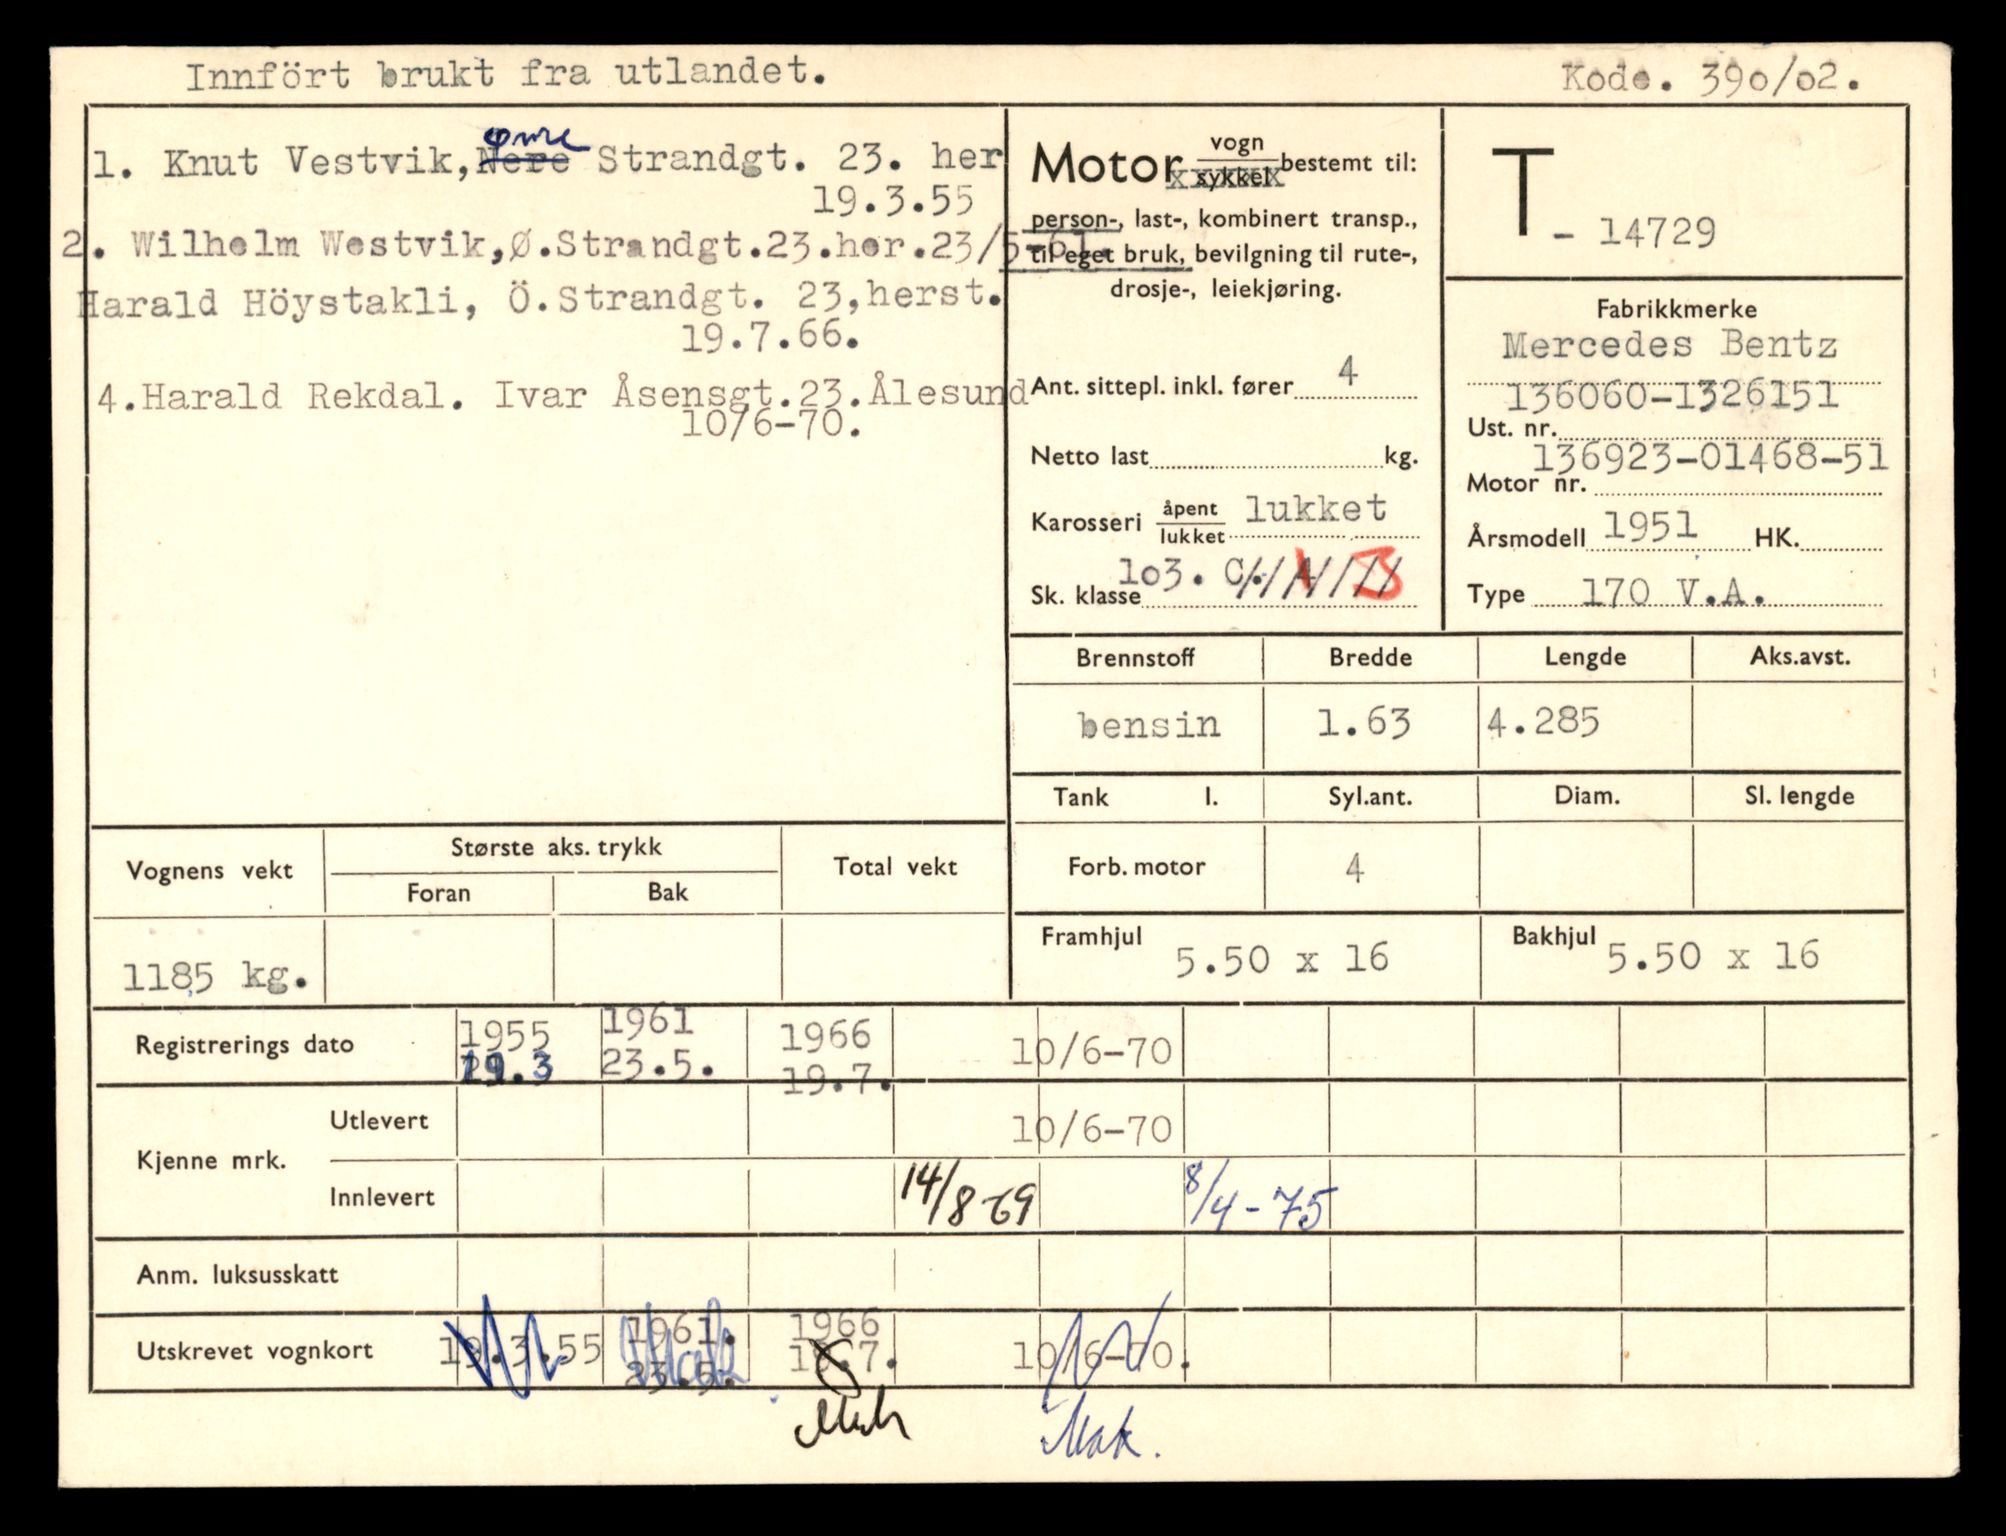 Innfört brukt fra utlandet.
Kode. 390/02.
1. Knut Vestvik, Nere Strandgt. 23. her
19.3.55
2. Wilhelm Westvik,Ø.Strandgt.23.her.23/5-61.
Harald Höystakli, Ö.Strandgt. 23,herst.
19.7.66.
4.Harald Rekdal. Ivar Åsensgt.23.Ålesund
10/6-70.
Motor vogn sykkel bestemt til:
person-, last-, kombinert transp.,
til eget bruk, bevilgning til rute-,
drosje-, leiekjøring.
Ant. sittepl. inkl. fører 4
Netto last kg.
Karosseri åpent lukket lukket
Sk. klasse 103. C.
T - 14729
Fabrikkmerke
Mercedes Bentz
136060-1326151
Ust. nr.
136923-01468-51
Motor nr.
Årsmodell 1951 HK.
Type 170 V.A.
Brennstoff Bredde Lengde Aks.avst.
bensin 1.63 4.285
Tank l. Syl.ant. Diam. Sl. lengde
Forb. motor 4
Framhjul 5.50 x 16 Bakhjul 5.50 x 16
Vognens vekt Største aks. trykk Total vekt
Foran Bak
1185 kg.
Registrerings dato 1955 19.3 1961 23.5. 1966 19.7. 10/6-70
Kjenne mrk.
Utlevert 10/6-70
Innlevert 14/8-69 8/4-75
Anm. luksusskatt
Utskrevet vognkort 19.3.55 1961. 23.5. 1966 19.7. 10/6-70.
Mak.